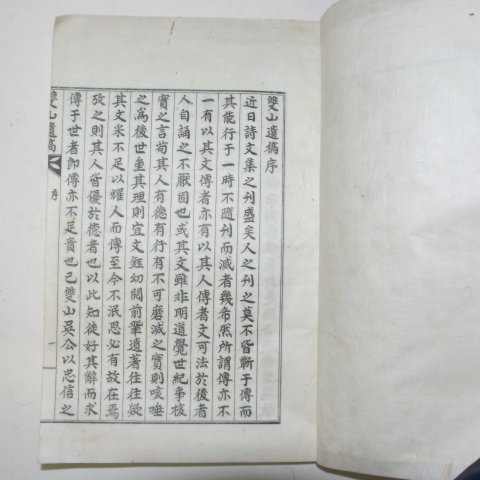 雙山遺稿序
近日詩文集之刊盛矣人之刊之莫不皆靳于傳而
其能行于一時不隨刊而滅者幾希然所謂傳亦不
一有以其文傳者亦有以其人傳者文可法於後者
人自誦之不厭固也或其文雖非明道覺世紀事核
實之言苟其人有德有行有不可磨滅之實則咳唾
之爲後世重其理則宜文鈺幼閱前輩遺著往往疑
其文米不足以耀人而傳至今不泯思必有故在焉
攷之則其人皆優於德者也以此知徒好其辭而求
傳于世者卽傳亦不足貴也已雙山吳公以忠信之
雙山遺稿 序 一